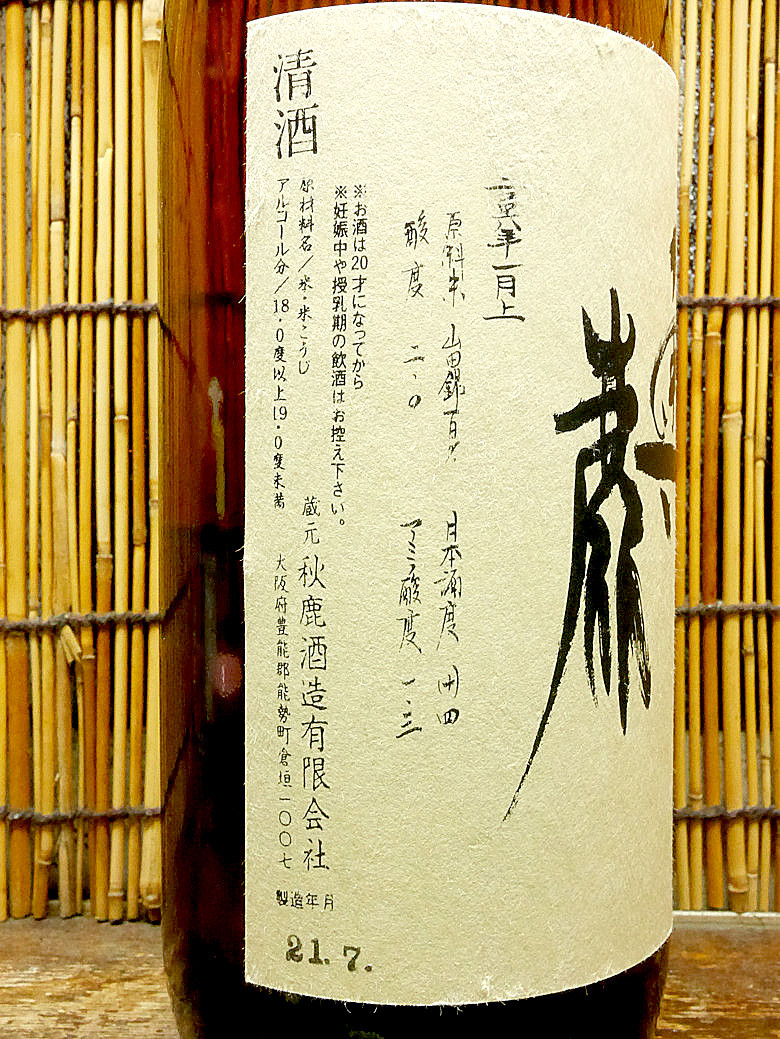 鹿
年一月上
原料米 山田錦 日本酒度 卄四
酸度 二.〇 アミノ酸度 一.三
※お酒は20才になってから
※妊娠中や授乳期の飲酒はお控え下さい。
清酒
原材料名/米・米こうじ
蔵元 秋鹿酒造有限会社
アルコール分/18.0度以上19.0度未満
大阪府豊能郡能勢町倉垣一〇〇七
製造年月
21.7.